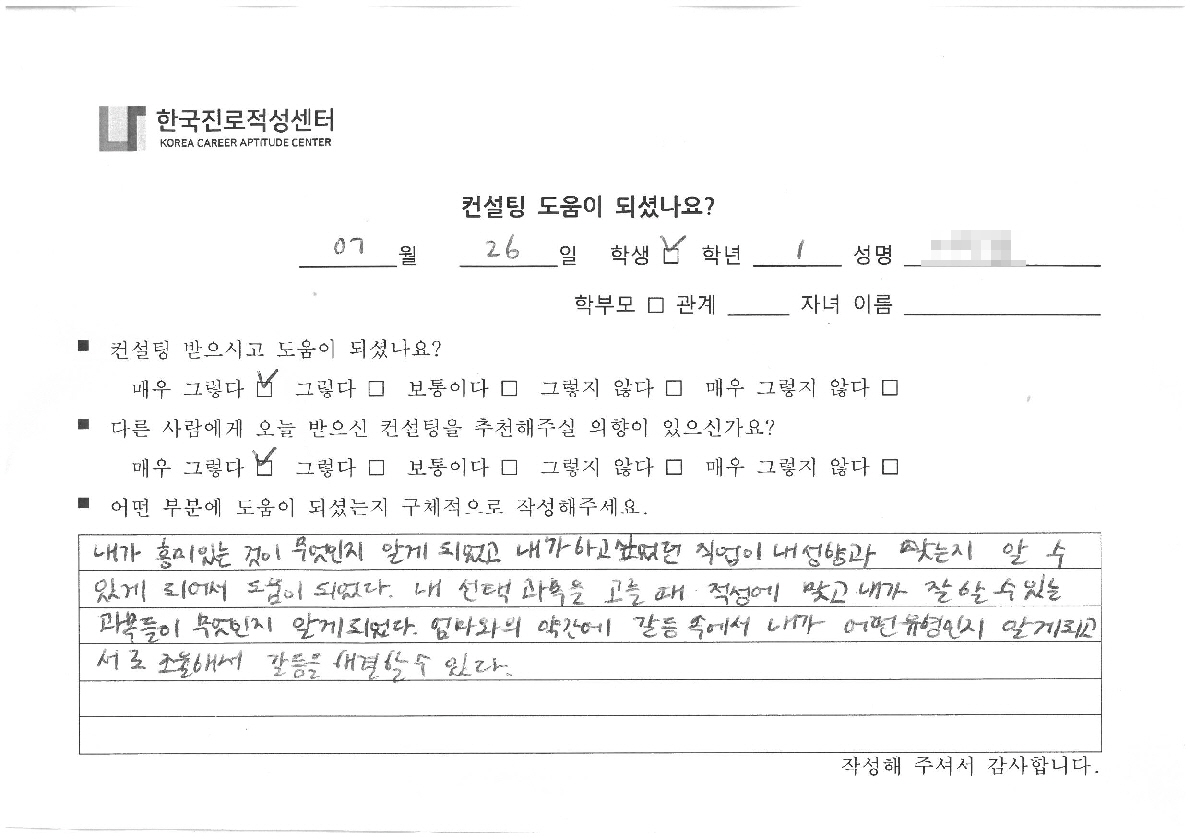 한국진로적성센터
KOREA CAREER APTITUDE CENTER
컨설팅 도움이 되셨나요?
07 월 26 일 학생 ☑ 학년 1 성명
학부모 □ 관계 자녀 이름
■ 컨설팅 받으시고 도움이 되셨나요?
매우 그렇다 ☑ 그렇다 □ 보통이다 □ 그렇지 않다 □ 매우 그렇지 않다 □
■ 다른 사람에게 오늘 받으신 컨설팅을 추천해주실 의향이 있으신가요?
매우 그렇다 ☑ 그렇다 □ 보통이다 □ 그렇지 않다 □ 매우 그렇지 않다 □
■ 어떤 부분에 도움이 되셨는지 구체적으로 작성해주세요.
내가 흥미있는 것이 무엇인지 알게 되었고 내가 하고 싶었던 직업이 내 성향과 맞는지 알 수
있게 되어서 도움이 되었다. 내 선택 과목을 고를 때 적성에 맞고 내가 잘 할 수 있는
과목들이 무엇인지 알게 되었다. 엄마와의 약간에 갈등 속에서 내가 어떤 유형인지 알게되고
서로 조율해서 갈등을 해결할 수 있다.
작성해 주셔서 감사합니다.